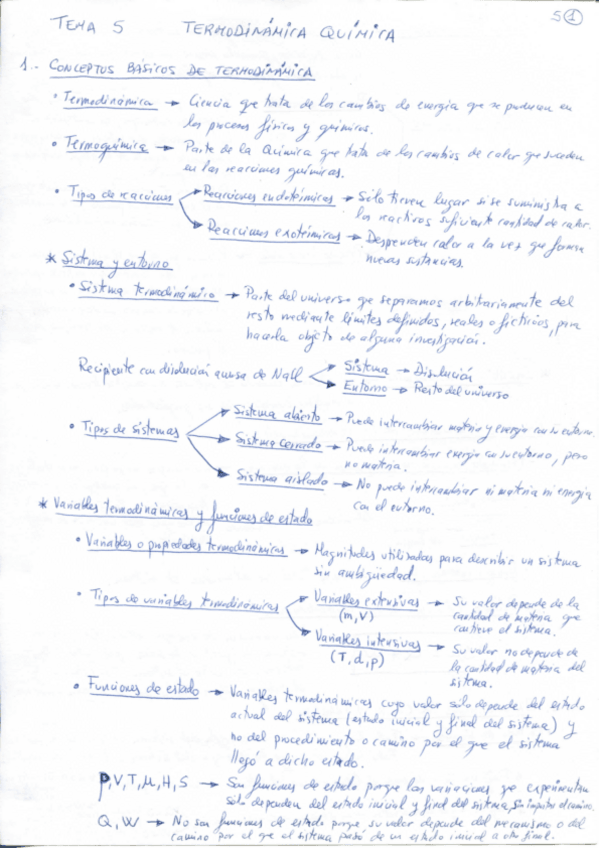 5 1
TEMA 5 TERMODINÁMICA QUÍMICA
1.- CONCEPTOS BÁSICOS DE TERMODINÁMICA
• Termodinámica → Ciencia que trata de los cambios de energía que se producen en
los procesos físicos y químicos.
• Termoquímica → Parte de la Química que trata de los cambios de calor que suceden
en las reacciones químicas.
• Tipos de reacciones → Reacciones endotérmicas → Sólo tienen lugar si se suministra a
los reactivos suficiente cantidad de calor.
→ Reacciones exotérmicas → Desprenden calor a la vez que forman
nuevas sustancias.
* Sistema y entorno
• Sistema termodinámico → Parte del universo que separamos arbitrariamente del
resto mediante límites definidos, reales o ficticios, para
hacerla objeto de alguna investigación.
Recipiente con disolución acuosa de NaCl → Sistema → Disolución
→ Entorno → Resto del universo
• Tipos de sistemas → Sistema abierto → Puede intercambiar materia y energía con su entorno.
→ Sistema cerrado → Puede intercambiar energía con su entorno, pero
no materia.
→ Sistema aislado → No puede intercambiar ni materia ni energía
con el entorno.
* Variables termodinámicas y funciones de estado
• Variables o propiedades termodinámicas → Magnitudes utilizadas para describir un sistema
sin ambigüedad.
• Tipos de variables termodinámicas → Variables extensivas → Su valor depende de la
(m,V) cantidad de materia que
contiene el sistema.
→ Variables intensivas → Su valor no depende de
(T,d,p) la cantidad de materia del
sistema.
• Funciones de estado → Variables termodinámicas cuyo valor sólo depende del estado
actual del sistema (estado inicial y final del sistema) y
no del procedimiento o camino por el que el sistema
llegó a dicho estado.
P,V,T,U,H,S → Son funciones de estado porque las variaciones que experimentan
sólo dependen del estado inicial y final del sistema, sin importar el camino.
Q,W → No son funciones de estado porque su valor depende del mecanismo o del
camino por el que el sistema pasó de un estado inicial a otro final.